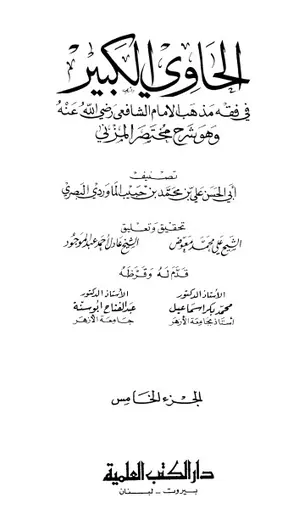 الحاوي الكبير
في فقه مذهب الإمام الشافعي رضي الله عنه
وهو شرح مختصر المزني
تصنيف
أبي الحسن علي بن محمد بن حبيب الماوردي البصري
تحقيق وتعليق
الشيخ علي محمد معوض الشيخ عادل أحمد عبد الموجود
قدم له وقرظه
الأستاذ الدكتور الأستاذ الدكتور
محمد بكر إسماعيل عبد الفتاح أبو سنة
أستاذ بجامعة الأزهر جامعة الأزهر
الجزء الخامس
دار الكتب العلمية
بيروت - لبنان